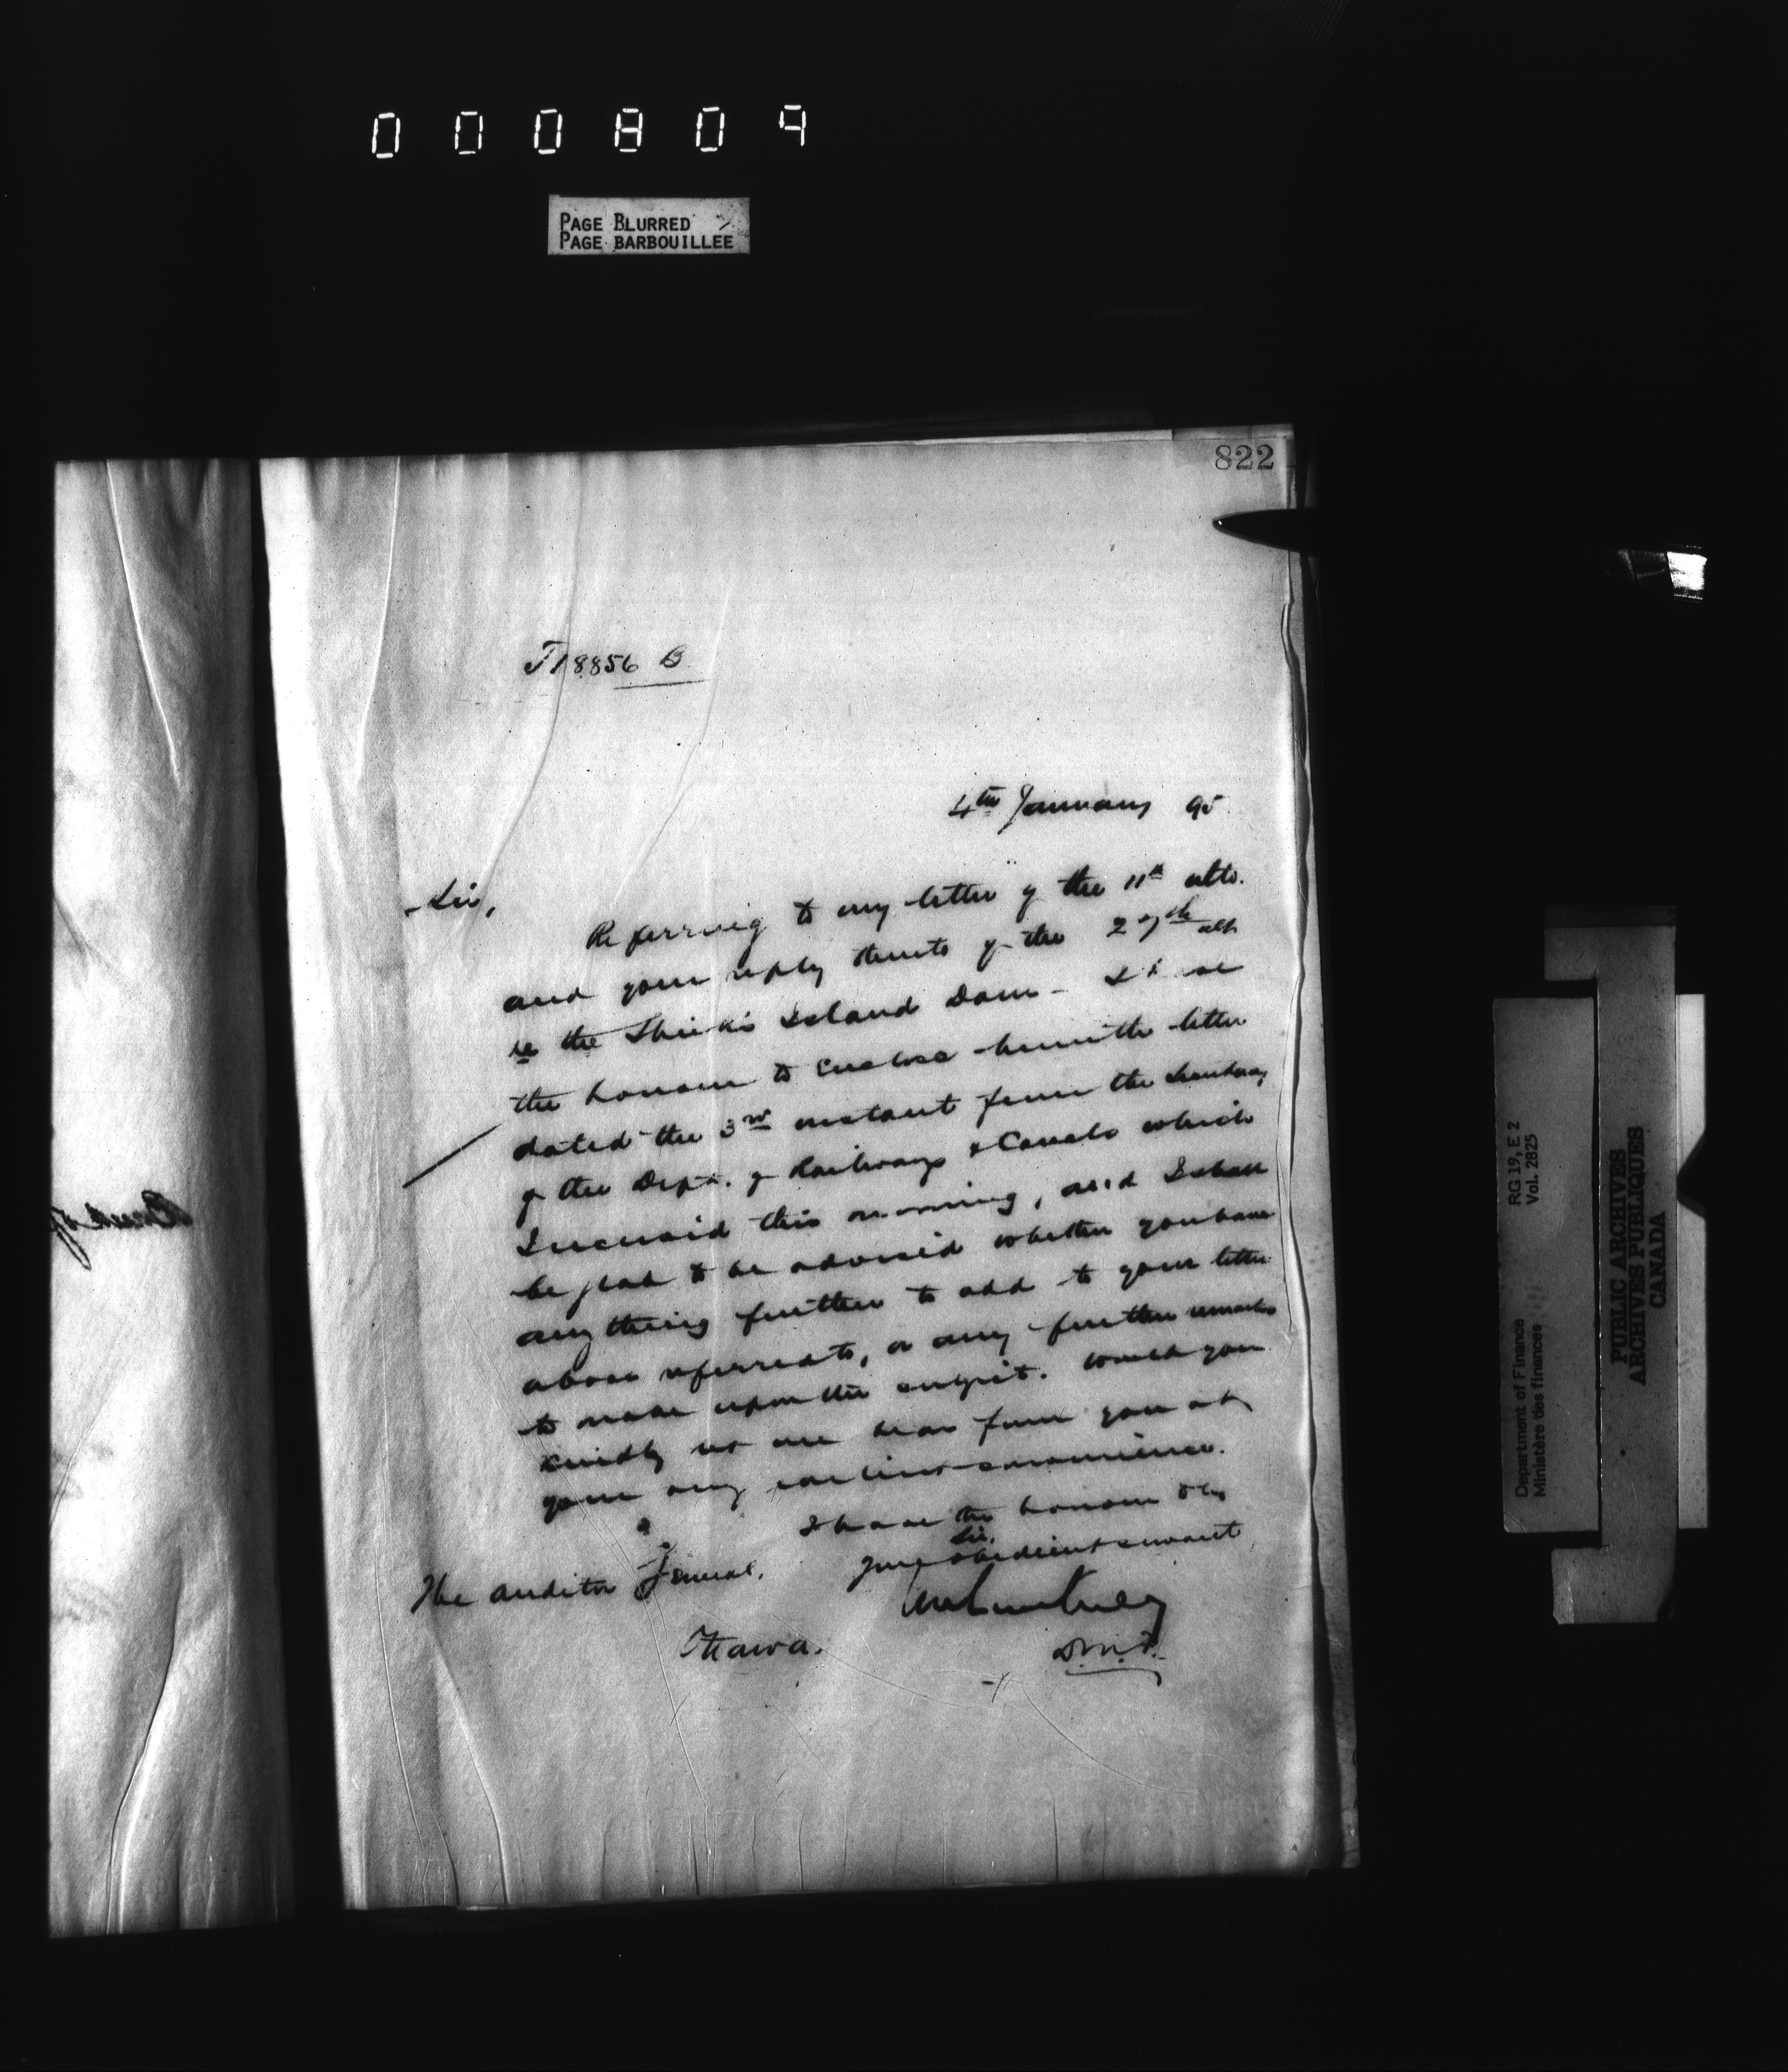 000809
PAGE BLURRED
PAGE BARBOUILLEE
822
J18856 B
4th January 95
Sir,
Referring to my letter of the 11th ulto.
and your reply thereto of the 27th ult
re the Sheiks Island Dam - I have
the honour to enclose herewith letter
dated the 3rd instant from the Secretary
of the Dept. of Railways & Canals which
I received this morning, and I shall
be glad to be advised whether you have
anything further to add to your letter
above referred to, or any further remarks
to make upon the subject. Would you
kindly let me hear from you at
your very earliest convenience.
I have the honour to be
Sir,
Your obedient servant
The Auditor General,
Ottawa.
D.M.F.
RG 19, E 2
Vol. 2825
Department of Finance
Ministère des finances
PUBLIC ARCHIVES
ARCHIVES PUBLIQUES
CANADA